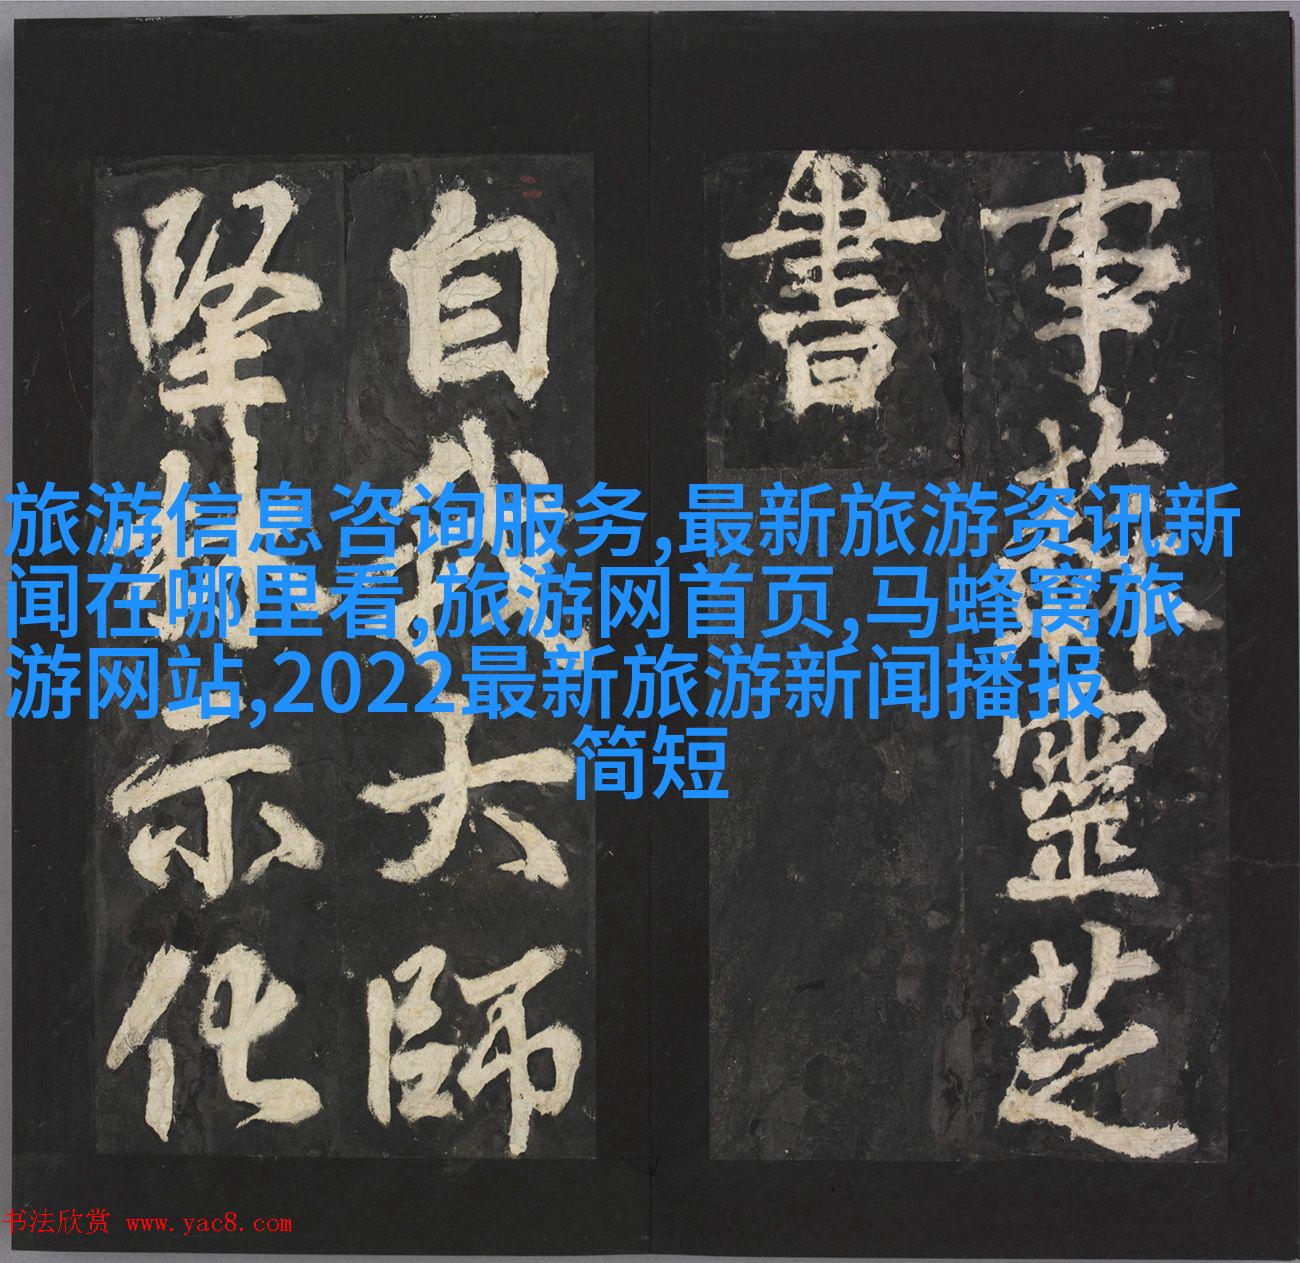 旅游信息咨询服务,最新旅游资讯新
闻在哪里看,旅游网首页,马蜂窝旅
游网站,2022最新旅游新闻播报
简短
事蘇靈芝
書
自我大師
堅林示化
书法欣赏 www.yac8.com